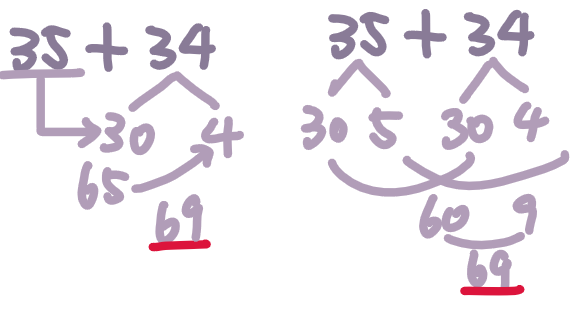 35 + 34
30 4
65
69
35 + 34
30 5 30 4
60 9
69